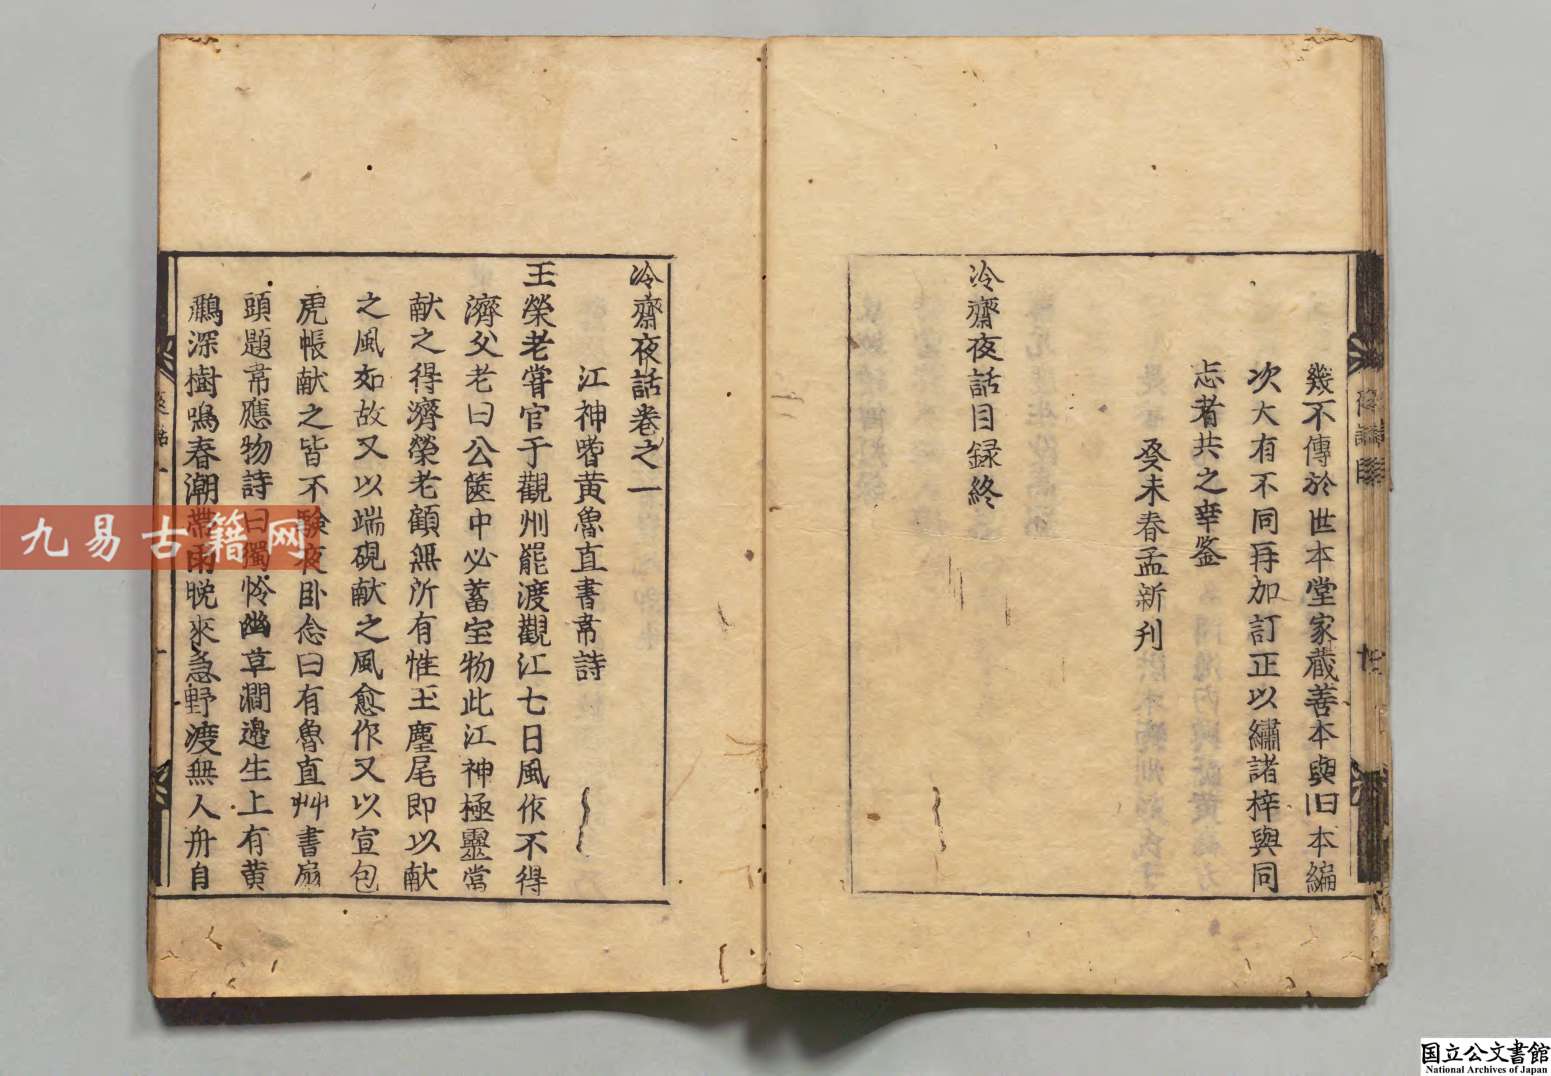 幾不傳於世本堂家蔵善本與旧本編
次大有不同再加訂正以繡諸梓與同
志者共之幸鉴
癸未春孟新刋
冷齋夜話目録終
冷齋夜話卷之一
江神嗜黄魯直書韦詩
王榮老甞官于觀州罷渡觀江七日風作不得
濟父老曰公篋中必蓄宝物此江神極靈當
献之得濟榮老顧無所有惟玉麈尾即以献
之風如故又以端硯献之風愈作又以宣包
虎帳献之皆不験夜卧念曰有魯直艸書扇
頭題韦應物詩曰獨怜幽草澗邉生上有黄
鸝深樹鳴春潮帶雨晚來急野渡無人舟自
九易古籍网
国立公文書館
National Archives of Japan